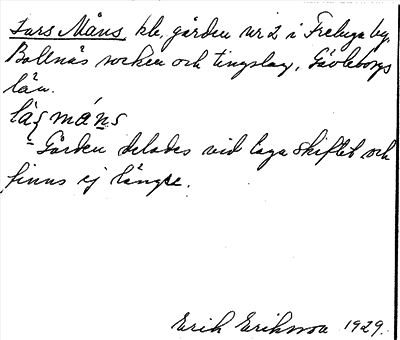 Lars Måns, kb, gården nr 2 i Freluga by,
Bollnäs socken och tingslag, Gävleborgs
län.
- Gården delades vid laga skiftet och
finns ej längre.
Erik Eriksson 1929.